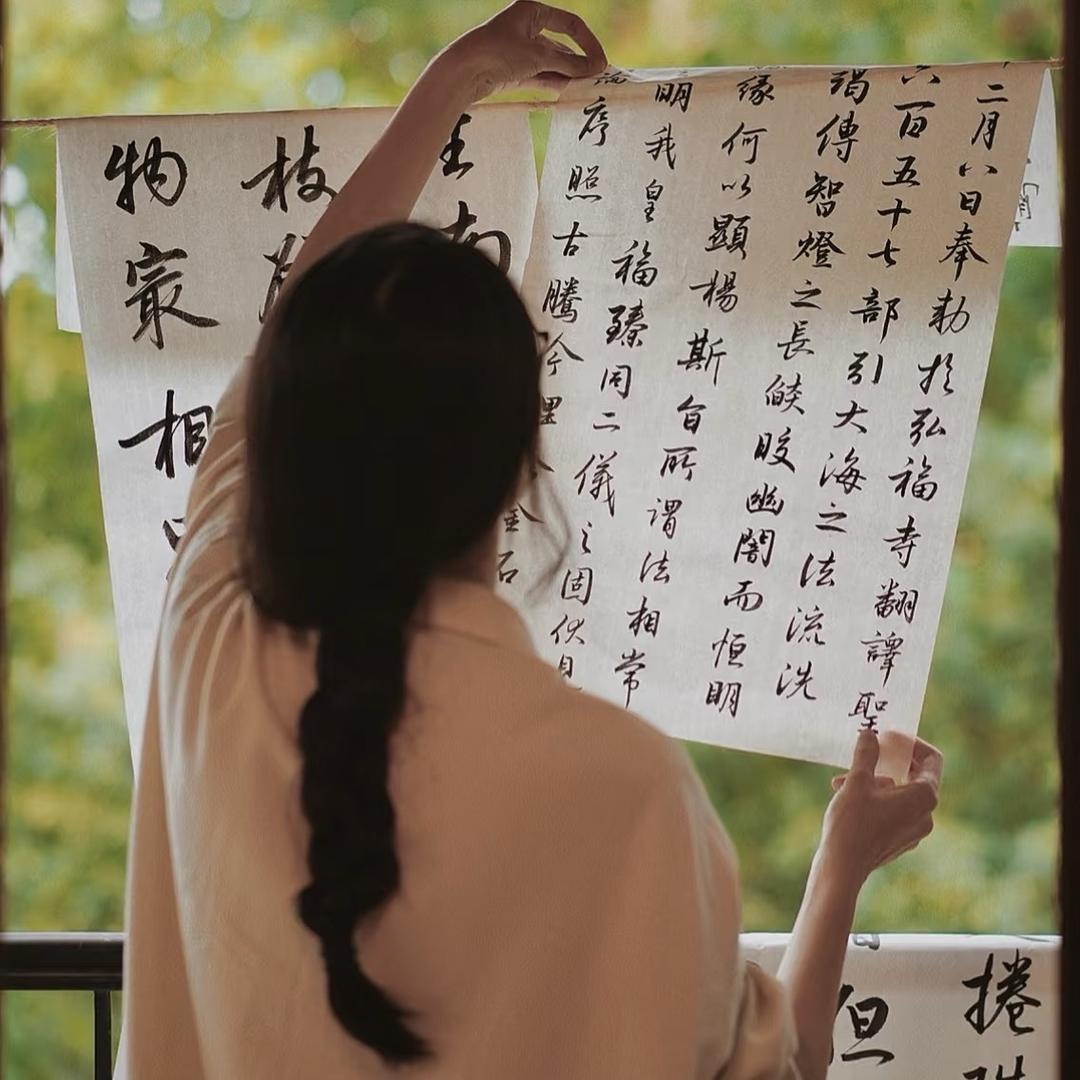 二月八日奉勅於弘福寺翻譯聖
六百五十七部引大海之法流洗
竭傳智燈之長燄皎幽闇而恒明
緣何以顯楊斯旨所謂法相常
明我皇福臻同二儀之固伏見
論序照古騰今理含金石
南
枝
物冣相
捲
但